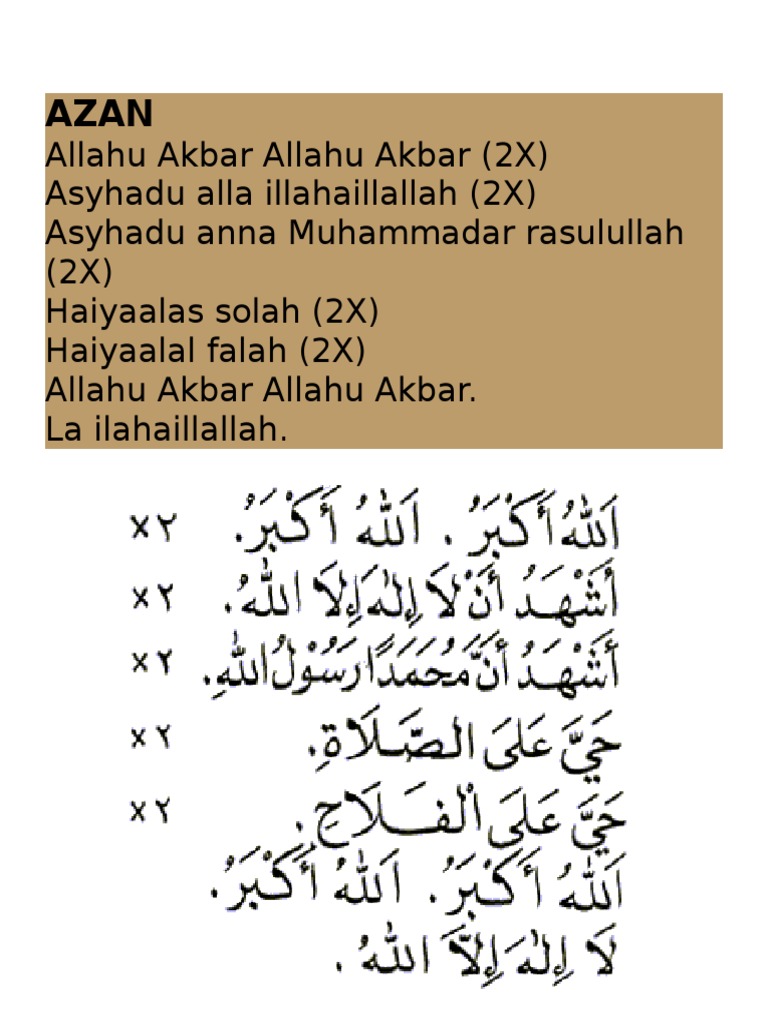 AZAN
Allahu Akbar Allahu Akbar (2X)
Asyhadu alla illahaillallah (2X)
Asyhadu anna Muhammadar rasulullah
(2X)
Haiyaalas solah (2X)
Haiyaalal falah (2X)
Allahu Akbar Allahu Akbar.
La ilahaillallah.
اَللّٰهُ أَكْبَرُ . اَللّٰهُ أَكْبَرُ. ×٢
أَشْهَدُ أَنْ لَا إِلٰهَ إِلَّا اللّٰهُ. ×٢
أَشْهَدُ أَنَّ مُحَمَدًا رَسُوْلُ اللّٰهِ. ×٢
حَيَّ عَلَى الصَّلَاةِ. ×٢
حَيَّ عَلَى الْفَلَاحِ. ×٢
اَللّٰهُ أَكْبَرُ. اَللّٰهُ أَكْبَرُ.
لَا إِلٰهَ إِلَّا اللّٰهُ .